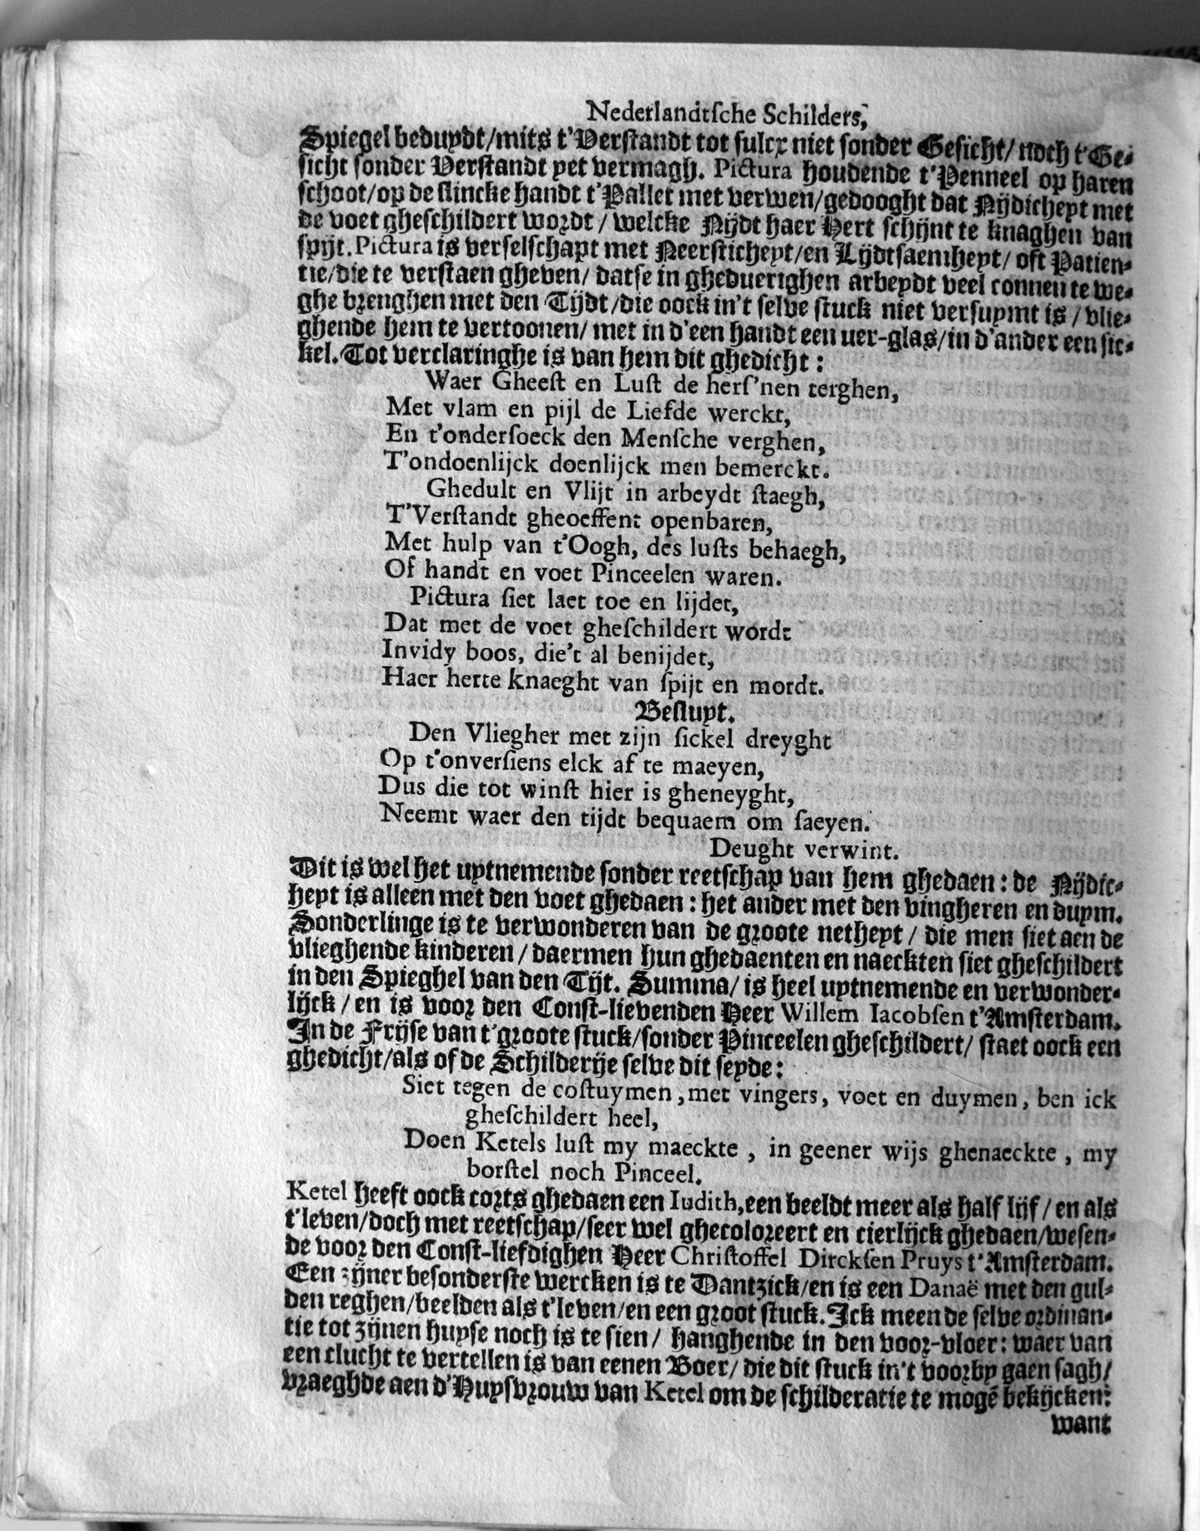 Nederlandtſche Schilders,
Spiegel beduydt/mits t'Verstandt tot sulcx niet sonder Gesicht/noch t'Ge-
sicht sonder Verstandt yet vermagh. Pictura houdende t'Penneel op haren
schoot/op de slincke handt t'Pallet met verwen/gedooght dat Nijdicheyt met
de voet gheschildert wordt/welcke Nijdt haer Hert schijnt te knaghen van
spijt. Pictura is verselschapt met Neersticheyt/en Lijdtsaemheyt/oft Patien-
tie/die te verstaen gheven/datse in gheduerighen arbeydt veel connen te we-
ghe brenghen met den Tijdt/die oock in't selve stuck niet versuymt is/vlie-
ghende hem te vertoonen/met in d'een handt een uer-glas/in d'ander een sic-
kel. Tot verclaringhe is van hem dit ghedicht:
Waer Gheeſt en Luſt de herſ'nen terghen,
Met vlam en pijl de Liefde werckt,
En t'onderſoeck den Menſche verghen,
T'ondoenlijck doenlijck men bemerckt.
Ghedult en Vlijt in arbeydt ſtaegh,
T'Verſtandt gheoeffent openbaren,
Met hulp van t'Oogh, des luſts behaegh,
Of handt en voet Pinceelen waren.
Pictura ſiet laet toe en lijdet,
Dat met de voet gheſchildert wordt
Invidy boos, die't al benijdet,
Haer herte knaeght van ſpijt en mordt.
Besluyt.
Den Vliegher met zijn ſickel dreyght
Op t'onverſiens elck af te maeyen,
Dus die tot winſt hier is gheneyght,
Neemt waer den tijdt bequaem om ſaeyen.
Deught verwint.
Dit is wel het uytnemende sonder reetschap van hem ghedaen: de Nijdic-
heyt is alleen met den voet ghedaen: het ander met den vingheren en duym.
Sonderlinge is te verwonderen van de groote netheyt/die men siet aen de
vlieghende kinderen/daermen hun ghedaenten en naeckten siet gheschildert
in den Spieghel van den Tijt. Summa/is heel uytnemende en verwonder-
lijck/en is voor den Const-lievenden Heer Willem Iacobſen t'Amsterdam.
In de Frijse van t'groote stuck/sonder Pinceelen gheschildert/staet oock een
ghedicht/als of de Schilderije selve dit seyde:
Siet tegen de coſtuymen, met vingers, voet en duymen, ben ick
gheſchildert heel,
Doen Ketels luſt my maeckte, in geener wijs ghenaeckte, my
borſtel noch Pinceel.
Ketel heeft oock corts ghedaen een Iudith, een beeldt meer als half lijf/en als
t'leven/doch met reetschap/seer wel ghecoloreert en cierlijck ghedaen/wesen-
de voor den Const-liefdighen Heer Chriſtoffel Dirckſen Pruys t'Amsterdam.
Een zijner besonderste wercken is te Dantzick/en is een Danaë met den gul-
den reghen/beelden als t'leven/en een groot stuck. Ick meen de selve ordinan-
tie tot zijnen huyse noch is te sien/hanghende in den voor-vloer: waer van
een clucht te vertellen is van eenen Boer/die dit stuck in't voorby gaen sagh/
vraeghde aen d'Huysvrouw van Ketel om de schilderatie te mogē bekijcken:
want